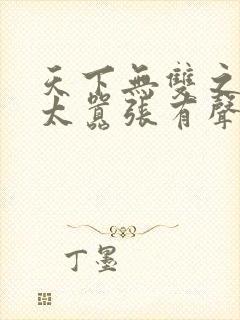 天下無雙之
太囂張有聲
丁墨